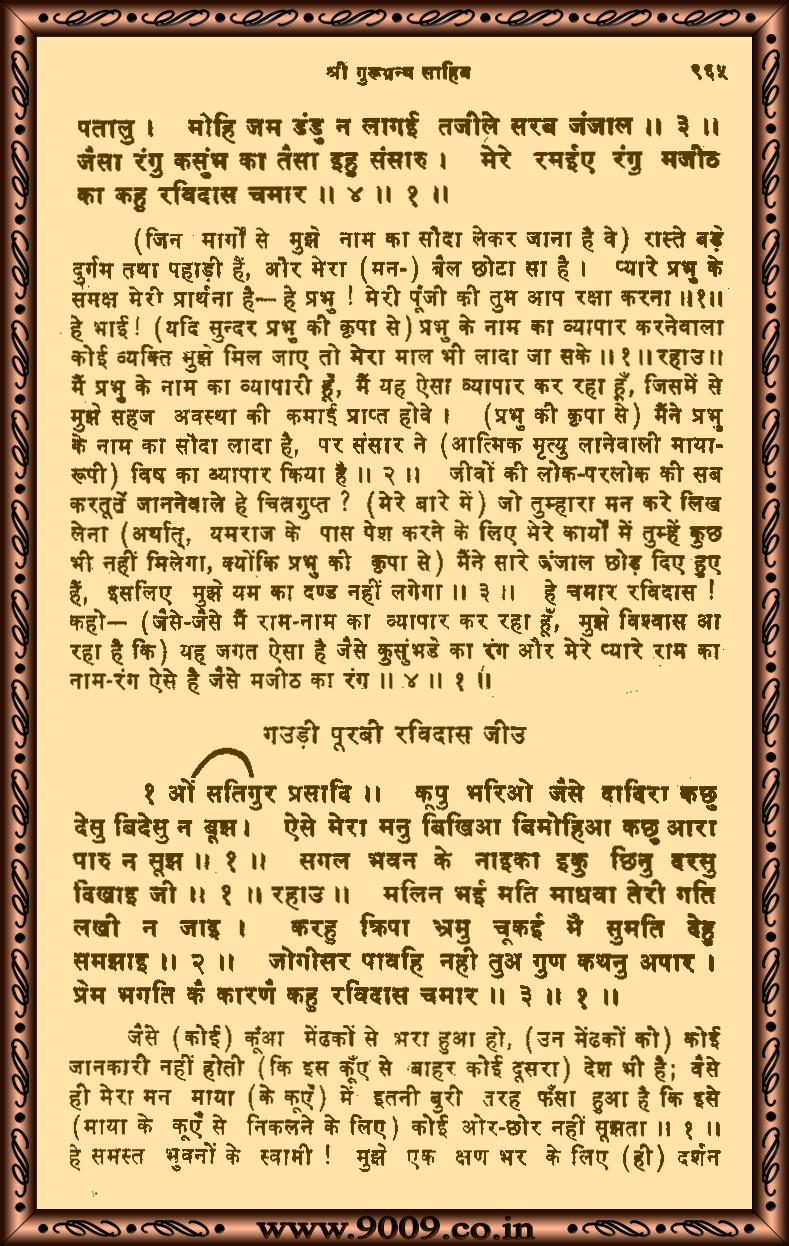 श्री गुरूग्रन्थ साहिब ९६५
पतालु । मोहि जम डंडु न लागई तजीले सरब जंजाल ॥ ३ ॥
जैसा रंगु कसुंभ का तैसा इहु संसारु । मेरे रमईए रंगु मजीठ
का कहु रविदास चमार ॥ ४ ॥ १ ॥
(जिन मार्गों से मुझे नाम का सौदा लेकर जाना है वे) रास्ते बड़े
दुर्गम तथा पहाड़ी हैं, और मेरा (मन-) बैल छोटा सा है । प्यारे प्रभु के
समक्ष मेरी प्रार्थना है— हे प्रभु ! मेरी पूंजी की तुम आप रक्षा करना ॥१॥
हे भाई ! (यदि सुन्दर प्रभु की कृपा से) प्रभु के नाम का व्यापार करनेवाला
कोई व्यक्ति मुझे मिल जाए तो मेरा माल भी लादा जा सके ॥ १ ॥ रहाउ ॥
मैं प्रभु के नाम का व्यापारी हूँ, मैं यह ऐसा व्यापार कर रहा हूँ, जिसमें से
मुझे सहज अवस्था की कमाई प्राप्त होवे । (प्रभु की कृपा से) मैंने प्रभु
के नाम का सौदा लादा है, पर संसार ने (आत्मिक मृत्यु लानेवाली माया-
रूपी) विष का व्यापार किया है ॥ २ ॥ जीवों की लोक-परलोक की सब
करतूतें जाननेवाले हे चित्रगुप्त ? (मेरे बारे में) जो तुम्हारा मन करे लिख
लेना (अर्थात्, यमराज के पास पेश करने के लिए मेरे कार्यों में तुम्हें कुछ
भी नहीं मिलेगा, क्योंकि प्रभु की कृपा से) मैंने सारे जंजाल छोड़ दिए हुए
हैं, इसलिए मुझे यम का दण्ड नहीं लगेगा ॥ ३ ॥ हे चमार रविदास !
कहो— (जैसे-जैसे मैं राम-नाम का व्यापार कर रहा हूँ, मुझे विश्वास आ
रहा है कि) यह जगत ऐसा है जैसे कुसुंभडे का रंग और मेरे प्यारे राम का
नाम-रंग ऐसे है जैसे मजीठ का रंग ॥ ४ ॥ १ ॥
गउड़ी पूरबी रविदास जीउ
१ ओं सतिगुर प्रसादि ॥ कूपु भरिओ जैसे दादिरा कछु
देसु बिदेसु न बूझ । ऐसे मेरा मनु बिखिआ बिमोहिआ कछु आरा
पारु न सूझ ॥ १ ॥ सगल भवन के नाइका इकु छिनु दरसु
दिखाइ जी ॥ १ ॥ रहाउ ॥ मलिन भई मति माधवा तेरी गति
लखी न जाइ । करहु क्रिपा भ्रमु चूकई मै सुमति देहु
समझाइ ॥ २ ॥ जोगीसर पावहि नही तुअ गुण कथनु अपार ।
प्रेम भगति कै कारणै कहु रविदास चमार ॥ ३ ॥ १ ॥
जैसे (कोई) कूंआ मेंढकों से भरा हुआ हो, (उन मेंढकों को) कोई
जानकारी नहीं होती (कि इस कूँए से बाहर कोई दूसरा) देश भी है; वैसे
ही मेरा मन माया (के कूएँ) में इतनी बुरी तरह फँसा हुआ है कि इसे
(माया के कूएँ से निकलने के लिए) कोई ओर-छोर नहीं सूझता ॥ १ ॥
हे समस्त भुवनों के स्वामी ! मुझे एक क्षण भर के लिए (ही) दर्शन
www.9009.co.in